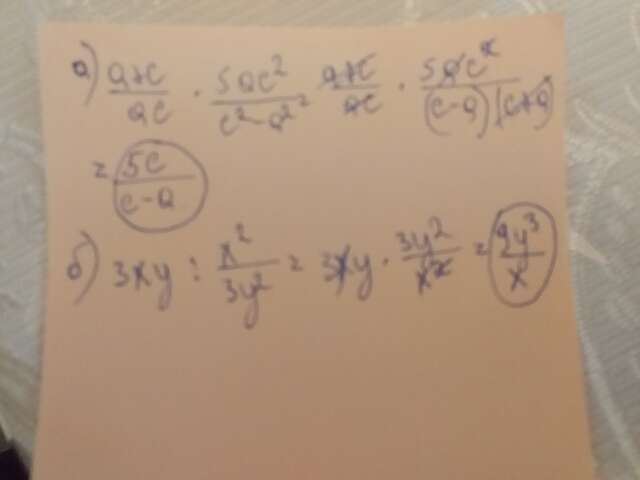 а) a+c/ac · 5ac²/c²-a² = a+c/ac · 5ac²/(c-a)(c+a)
= 5c/c-a
б) 3xy : x²/3y² = 3xy · 3y²/x² = 9y³/x